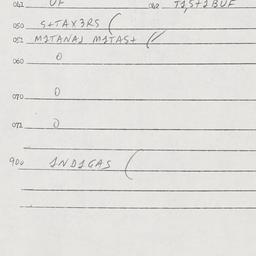 061 UF 062 T1,5+1BUF
050 S+TAX3RS (
051 M1TANAJ M1TAS+ (
060 0
070 0
071 0
900 1ND1GAS (